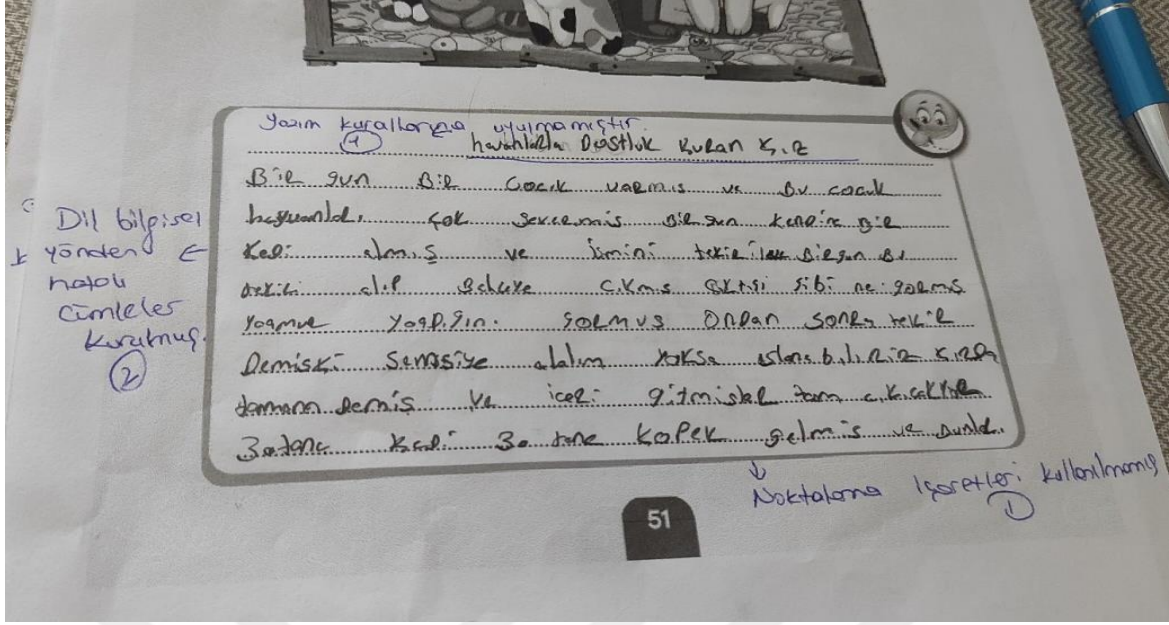 Yazım kurallarına uyulmamıştır.
1
Dostluk Kuran Kız
Bir gun Bir Cocuk varmıs ve Bu cocuk
cok severmis Bir gun kendine Bir
Kedi almış ve ismini tekir Birgun Bu
alıp cıkmıs gibi ne gormus
Yagmur yagdıgın. gormus Ondan sonra tekir
Demiski Semsiye alalım yoksa kızda
tamam Demis ve iceri gitmisler tam
30 tane Kedi 30 tane Kopek gelmis ve Bunlar
Dil bilgisel
yönden
hatalı
cümleler
kurulmuş.
2
Noktalama İşaretleri kullanılmamış
1
51